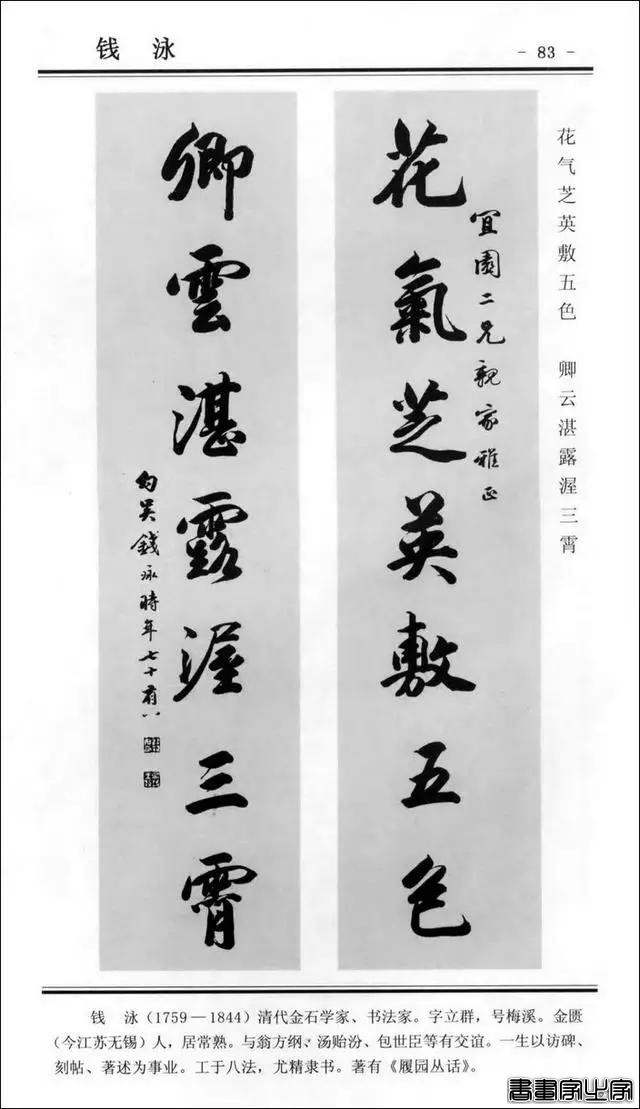 钱 泳
- 83 -
花气芝英敷五色 卿云湛露渥三霄
花氣芝英敷五色
宜園二兄親家雅正
卿雲湛露渥三霄
勾吴錢泳時年七十有八
钱 泳(1759—1844)清代金石学家、书法家。字立群，号梅溪。金匮
(今江苏无锡)人，居常熟。与翁方纲、汤贻汾、包世臣等有交谊。一生以访碑、
刻帖、著述为事业。工于八法，尤精隶书。著有《履园丛话》。
書畫家之家